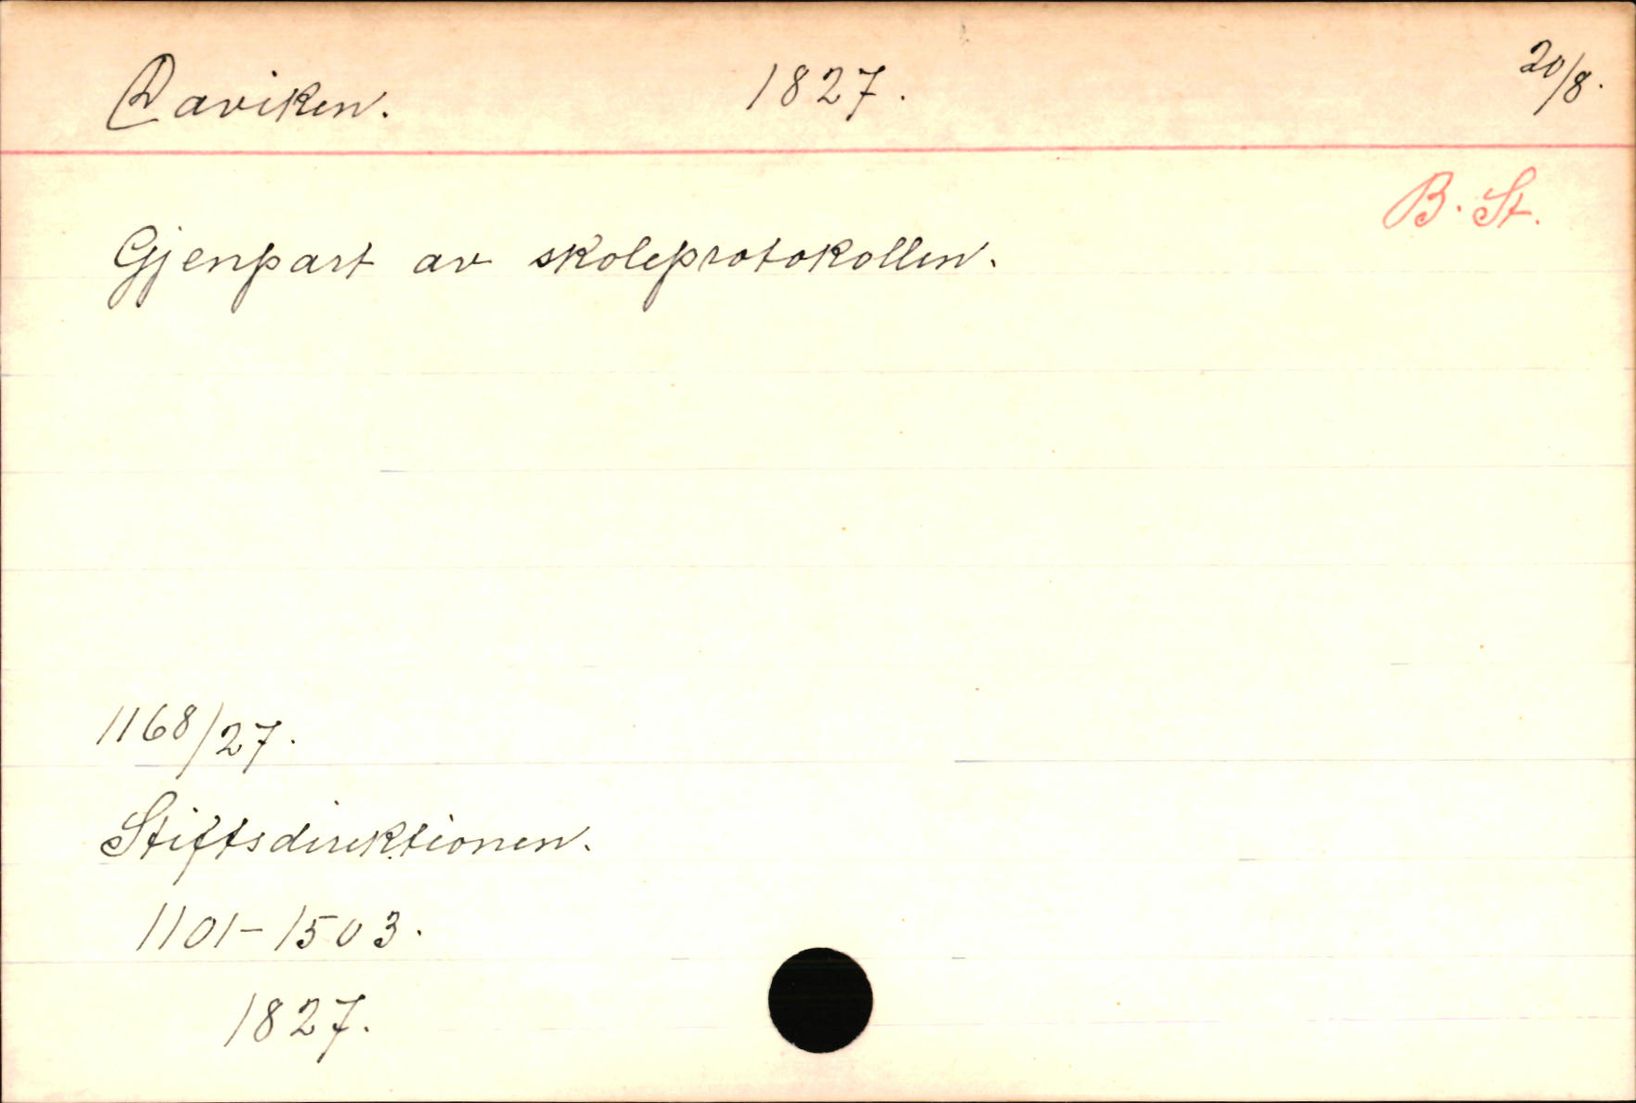 Daviken. 1827. 20/8.
B. St.
Gjenpart av skoleprotokollen.
1168/27.
Stiftsdirektionen.
1101-1503.
1827.